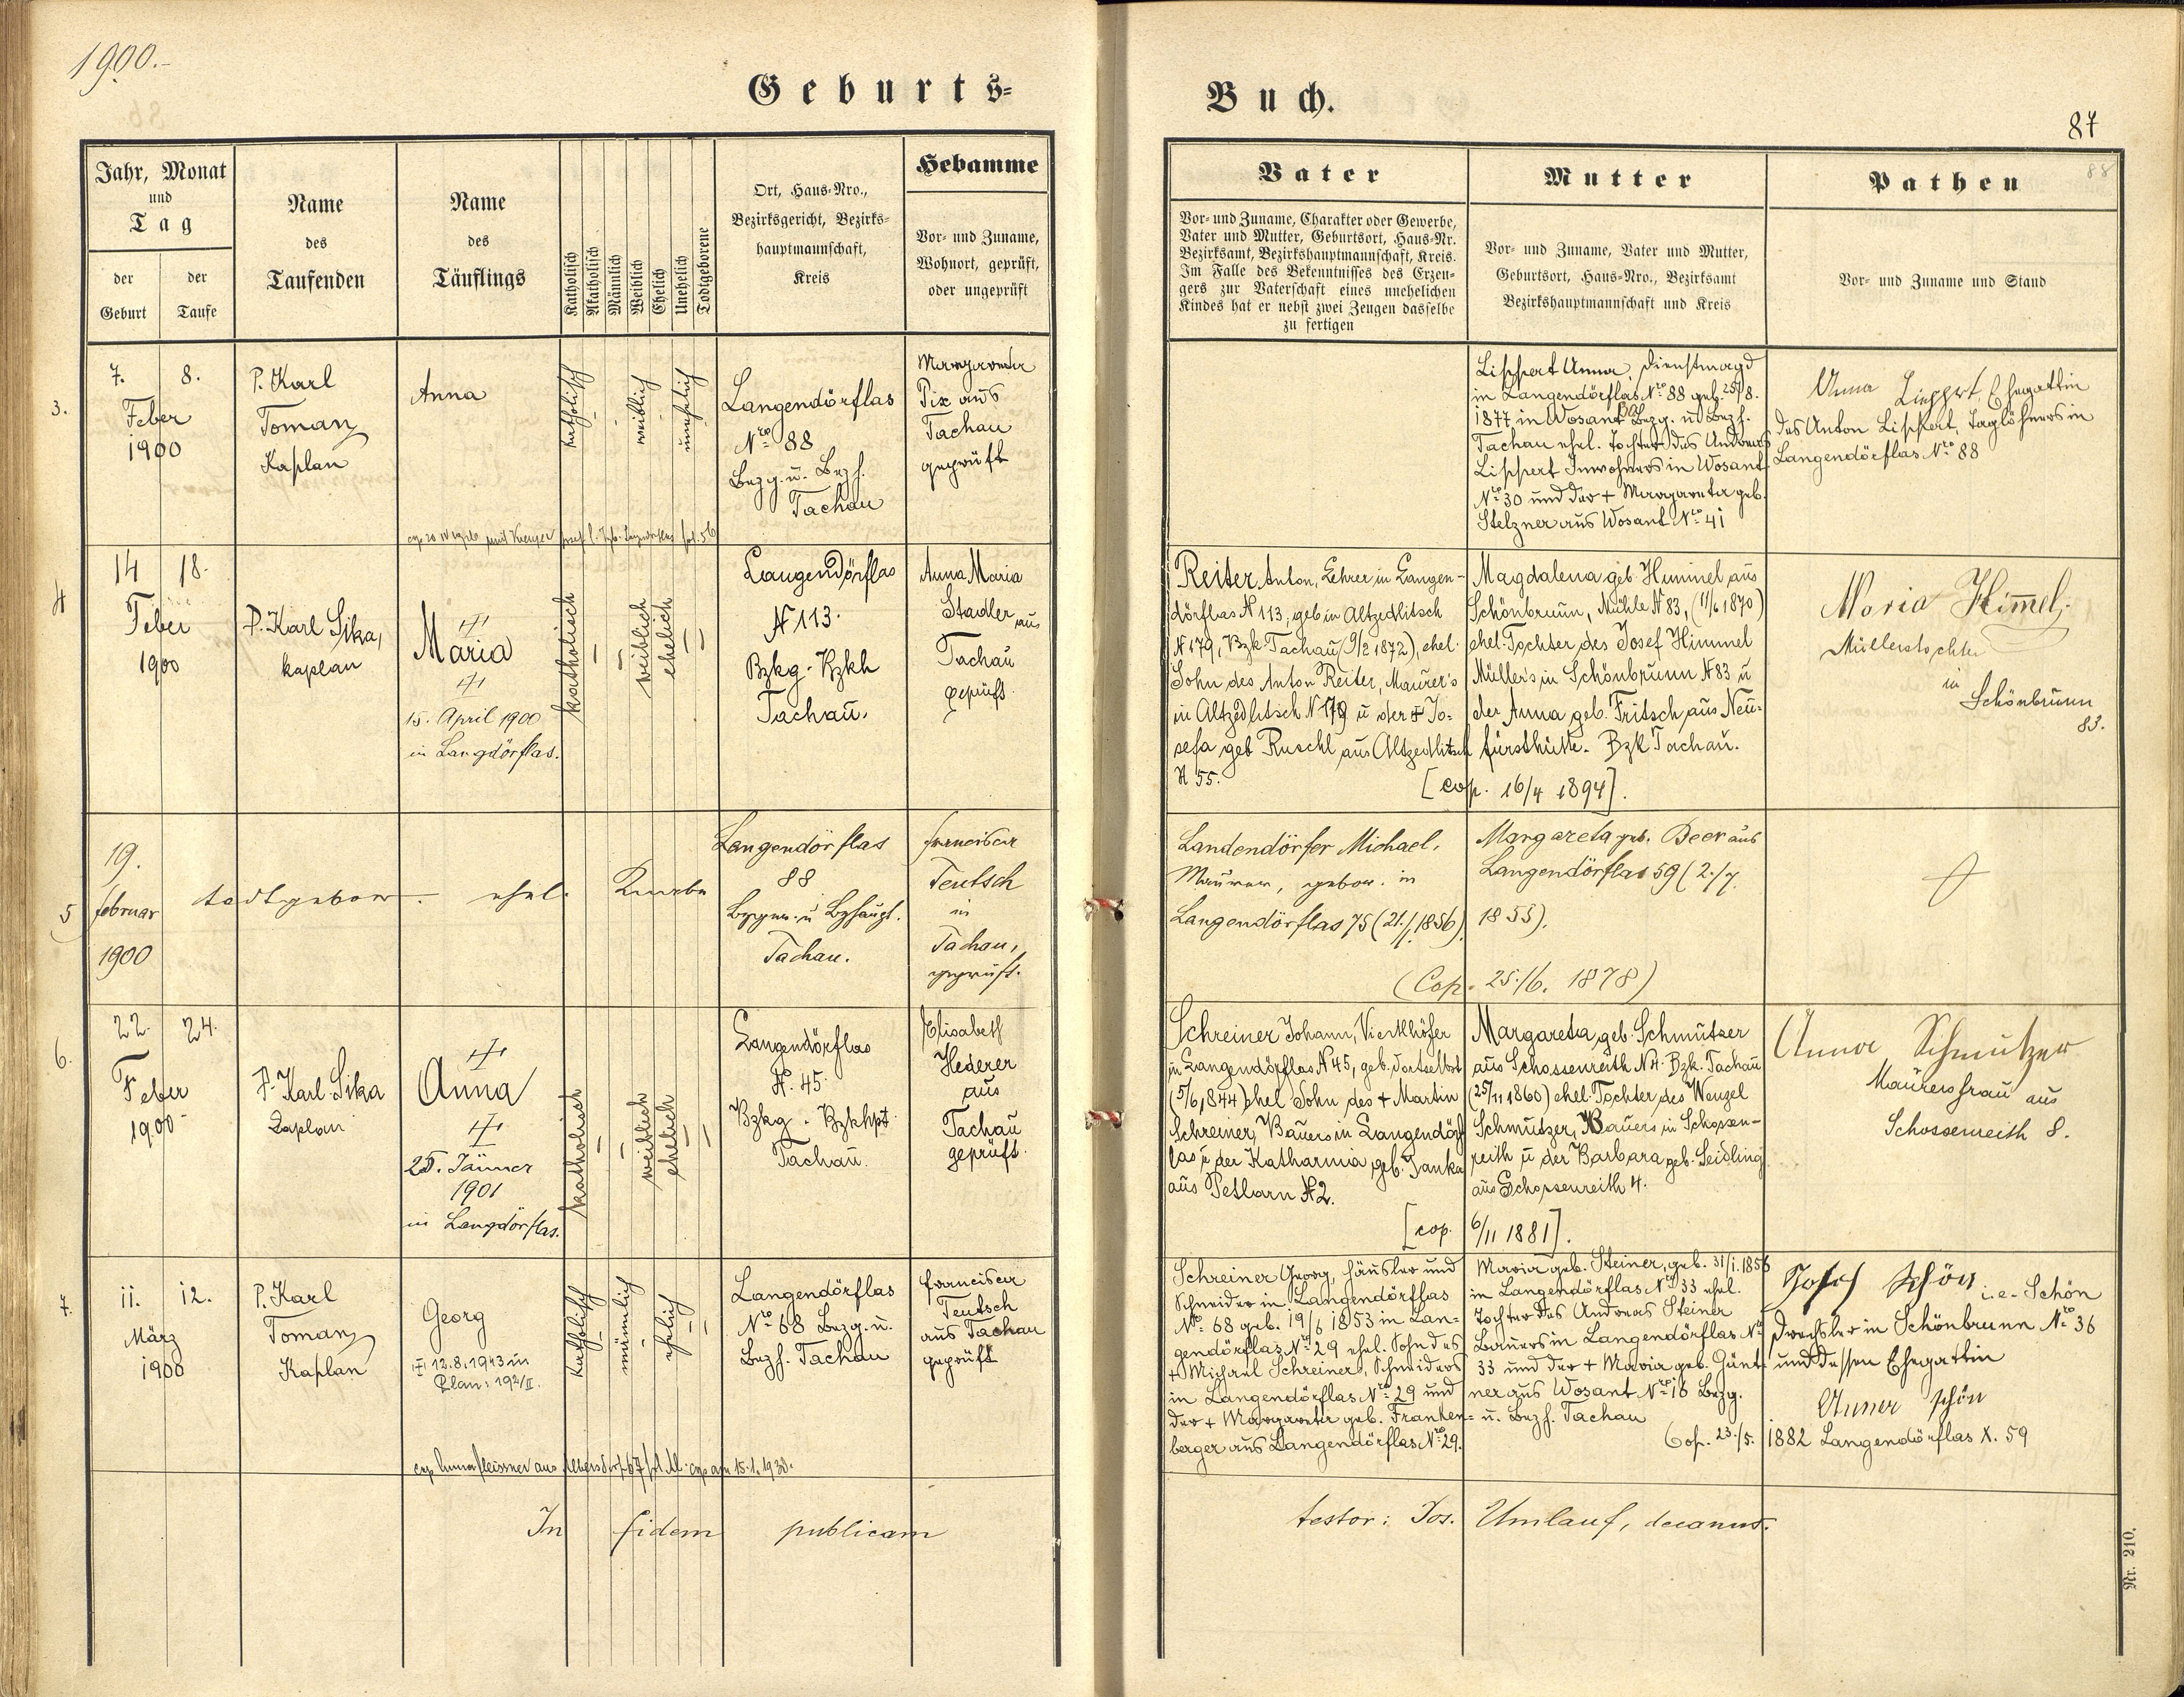 1900.-
Geburts-
Jahr, Monat
und
Tag
der
Geburt
der
Taufe
Name
des
Taufenden
Name
des
Täuflings
Katholisch
Akatholisch
Männlich
Weiblich
Ehelich
Unehelich
Todtgeborene
Ort, Haus-Nro.,
Bezirksgericht, Bezirks-
hauptmannschaft,
Kreis
Hebamme
Vor- und Zuname,
Wohnort, geprüft,
oder ungeprüft
3.
7. 8.
Feber
1900
P. Karl
Toman
Kaplan
Anna
katholisch
weiblich
unehelich
Langendörflas
Nro 88
Bezg. u. Bezh.
Tachau
Margareta
Pix aus
Tachau
geprüft
4
14 18.
Feber
1900
P. Karl Sika,
kaplan
Maria
15. April 1900
in Langdörflas.
katholisch
weiblich
ehelich
Langendörflas
N 113.
Bzkg - Bzkh
Tachau.
Anna Maria
Stadler aus
Tachau
geprüft.
5
19.
februar
1900
todtgebor. ehel. Knabe
Langendörflas
88
Tachau.
Francisca
Teutsch
in
Tachau,
geprüft.
6.
22. 24.
Feber
1900
P. Karl Sika
Kaplan
Anna
25. Jänner
1901
in Langdörflas.
katholisch
weiblich
ehelich
Langendörflas
N. 45.
Bzkg. Bzkhpt
Tachau.
Elisabeth
Hederer
aus
Tachau
geprüft.
7.
11. 12.
März
1900
P. Karl
Toman
Kaplan
Georg
12.8.1943 in
Plan: 192/II.
katholisch
männlich
ehelich
Langendörflas
Nro 68 Bezg. u.
Bezh. Tachau
Francisca
Teutsch
aus Tachau
geprüft
cop am 15.1.1938.
In fidem publicam
Buch.
87
88
Vater
Vor- und Zuname, Charakter oder Gewerbe,
Vater und Mutter, Geburtsort, Haus-Nr.
Bezirksamt, Bezirkshauptmannschaft, Kreis.
Im Falle des Bekenntnisses des Erzeu-
gers zur Vaterschaft eines unehelichen
Kindes hat er nebst zwei Zeugen dasselbe
zu fertigen
Mutter
Vor- und Zuname, Vater und Mutter,
Geburtsort, Haus-Nro., Bezirksamt
Bezirkshauptmannschaft und Kreis
Pathen
Vor- und Zuname und Stand
Lippert Anna, Dienstmagd
in Langendörflas Nro 88 geb. 25/8.
1877 in Wosant Bezg. u Bezh.
Tachau ehel. Tochter des Andreas
Lippert Inwohners in Wosant
Nro 30 und der + Margareta geb.
Stelzner aus Wosant Nro 41
Anna Lippert, Ehegattin
des Anton Lippert, Taglöhners in
Langendörflas Nro 88
Reiter Anton, Lehrer in Langen-
dörflas N 113, geb in Altzedlitsch
N 179, Bzk Tachau (9/2 1872), ehel.
Sohn des Anton Reiter, Maurer's
in Altzedlitsch N 179 u der + Jo-
sefa geb Ruschl aus Altzedlitsch
N 55.
Magdalena geb. Himmel aus
Schönbrunn, Mühle N 83, (11/6 1870)
ehel. Tochter des Josef Himmel
Müller's in Schönbrunn N 83 u
der Anna geb. Fritsch aus Neu-
fürsthütte. Bzk Tachau.
[cop. 16/4 1894].
Maria Himmel.
Müllerstochter
in
Schönbrunn
83.
Landendörfer Michael,
Maurer, gebor. in
Langendörflas 75 (21./1. 1856).
Margareta geb. Beer aus
Langendörflas 59 (2./7.
1855).
(Cop. 25./6. 1878)
Schreiner Johann, Viertlhöfer
in Langendörflas N 45, geb. dortselbst
(5/6 1844) ehel Sohn des + Martin
Schreiner, Bauers in Langendörf
las u der Katharina geb. Janka
aus Petlarn N 2.
Margareta geb. Schmutzer
aus Schossenreith N 4. Bzk. Tachau
(25/11 1860) ehel. Tochter des Wenzel
Schmutzer, Bauers in Schossen-
reith u der Barbara geb. Seidling
aus Schossenreith 4.
[cop. 6/11 1881].
Anna Schmutzer
Maurersfrau aus
Schossenreith 8.
Schreiner Georg, Häusler und
Schneider in Langendörflas
Nro 68 geb. 19/6 1853 in Lan-
gendörflas Nro 29 ehel. Sohn des
+ Michael Schreiner, Schneiders
in Langendörflas Nro 29 und
der + Margareta geb. Franken-
berger aus Langendörflas Nro 29.
Maria geb. Steiner, geb. 31/1. 1856
in Langendörflas Nro 33 ehel.
Tochter des Andreas Steiner
Bauers in Langendörflas Nro
33 und der + Maria geb. Günt-
ner aus Wosant Nro 16 Bezg.
u. Bezh. Tachau
Cop. 23./5. 1882 Langendörflas X. 59
Josef Schön i.e. Schön
Drechsler in Schönbrunn Nro 36
und dessen Ehegattin
Anna Schön
testor: Jos. Umlauf, decanus.
Nr. 210.